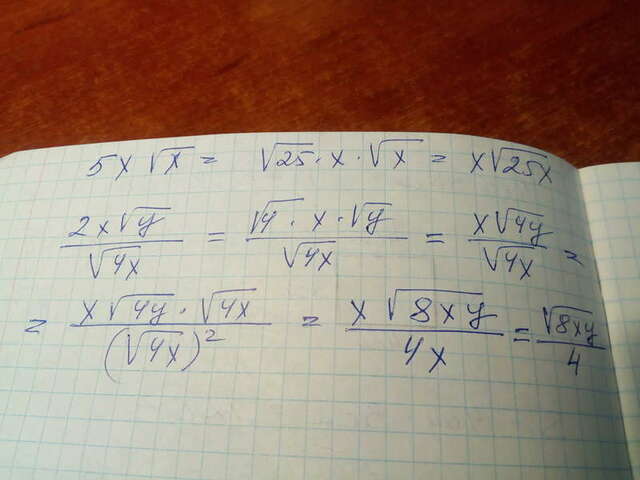 5x √x = √25 · x · √x = x√25x
2x√y / √4x = √4 · x · √y / √4x = x√4y / √4x =
= x√4y · √4x / (√4x)² = x√8xy / 4x = √8xy / 4